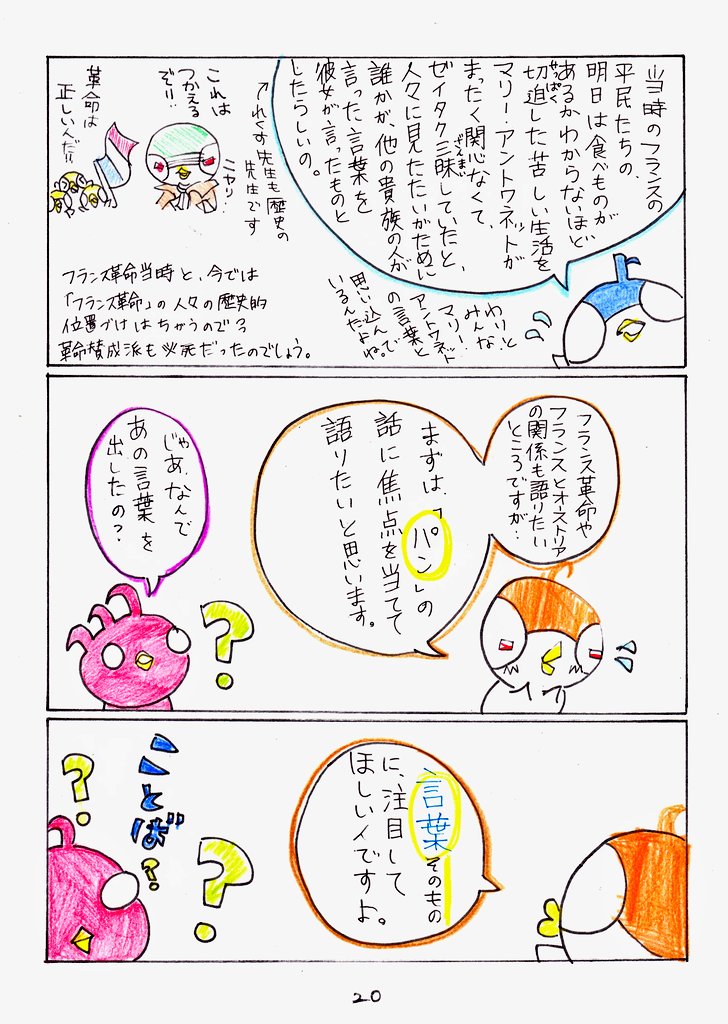 当時のフランスの
平民たちの、
明日は食べものが
あるかわからないほど
切迫した苦しい生活を
せっぱく
マリー・アントワネットが
まったく関心なくて、
ゼイタク三昧していたと、
ざんまい
人々に見たたいがために
誰かが、他の貴族の人が
言った言葉を
彼女が言ったものと
したらしいの。
わりと
みんな
マリー・
アントワネット
の言葉と
思い込んで
いるんだよね。
↑れくす先生も歴史の
先生です
ニヤリ
これは
つかえる
ぞ!!
革命は
正しいんだ!!
フランス革命当時と、今では
「フランス革命」の人々の歴史的
位置づけはちがうので
革命賛成派も必死だったのでしょう。
フランス革命や
フランスとオーストリア
の関係も語りたい
ところですが…
まずは、「パン」の
話に焦点を当てて
語りたいと思います。
じゃあ、なんで
あの言葉を
出したの?
?
言葉そのもの
に、注目して
ほしいんですよ。
?
ことば?
?
20